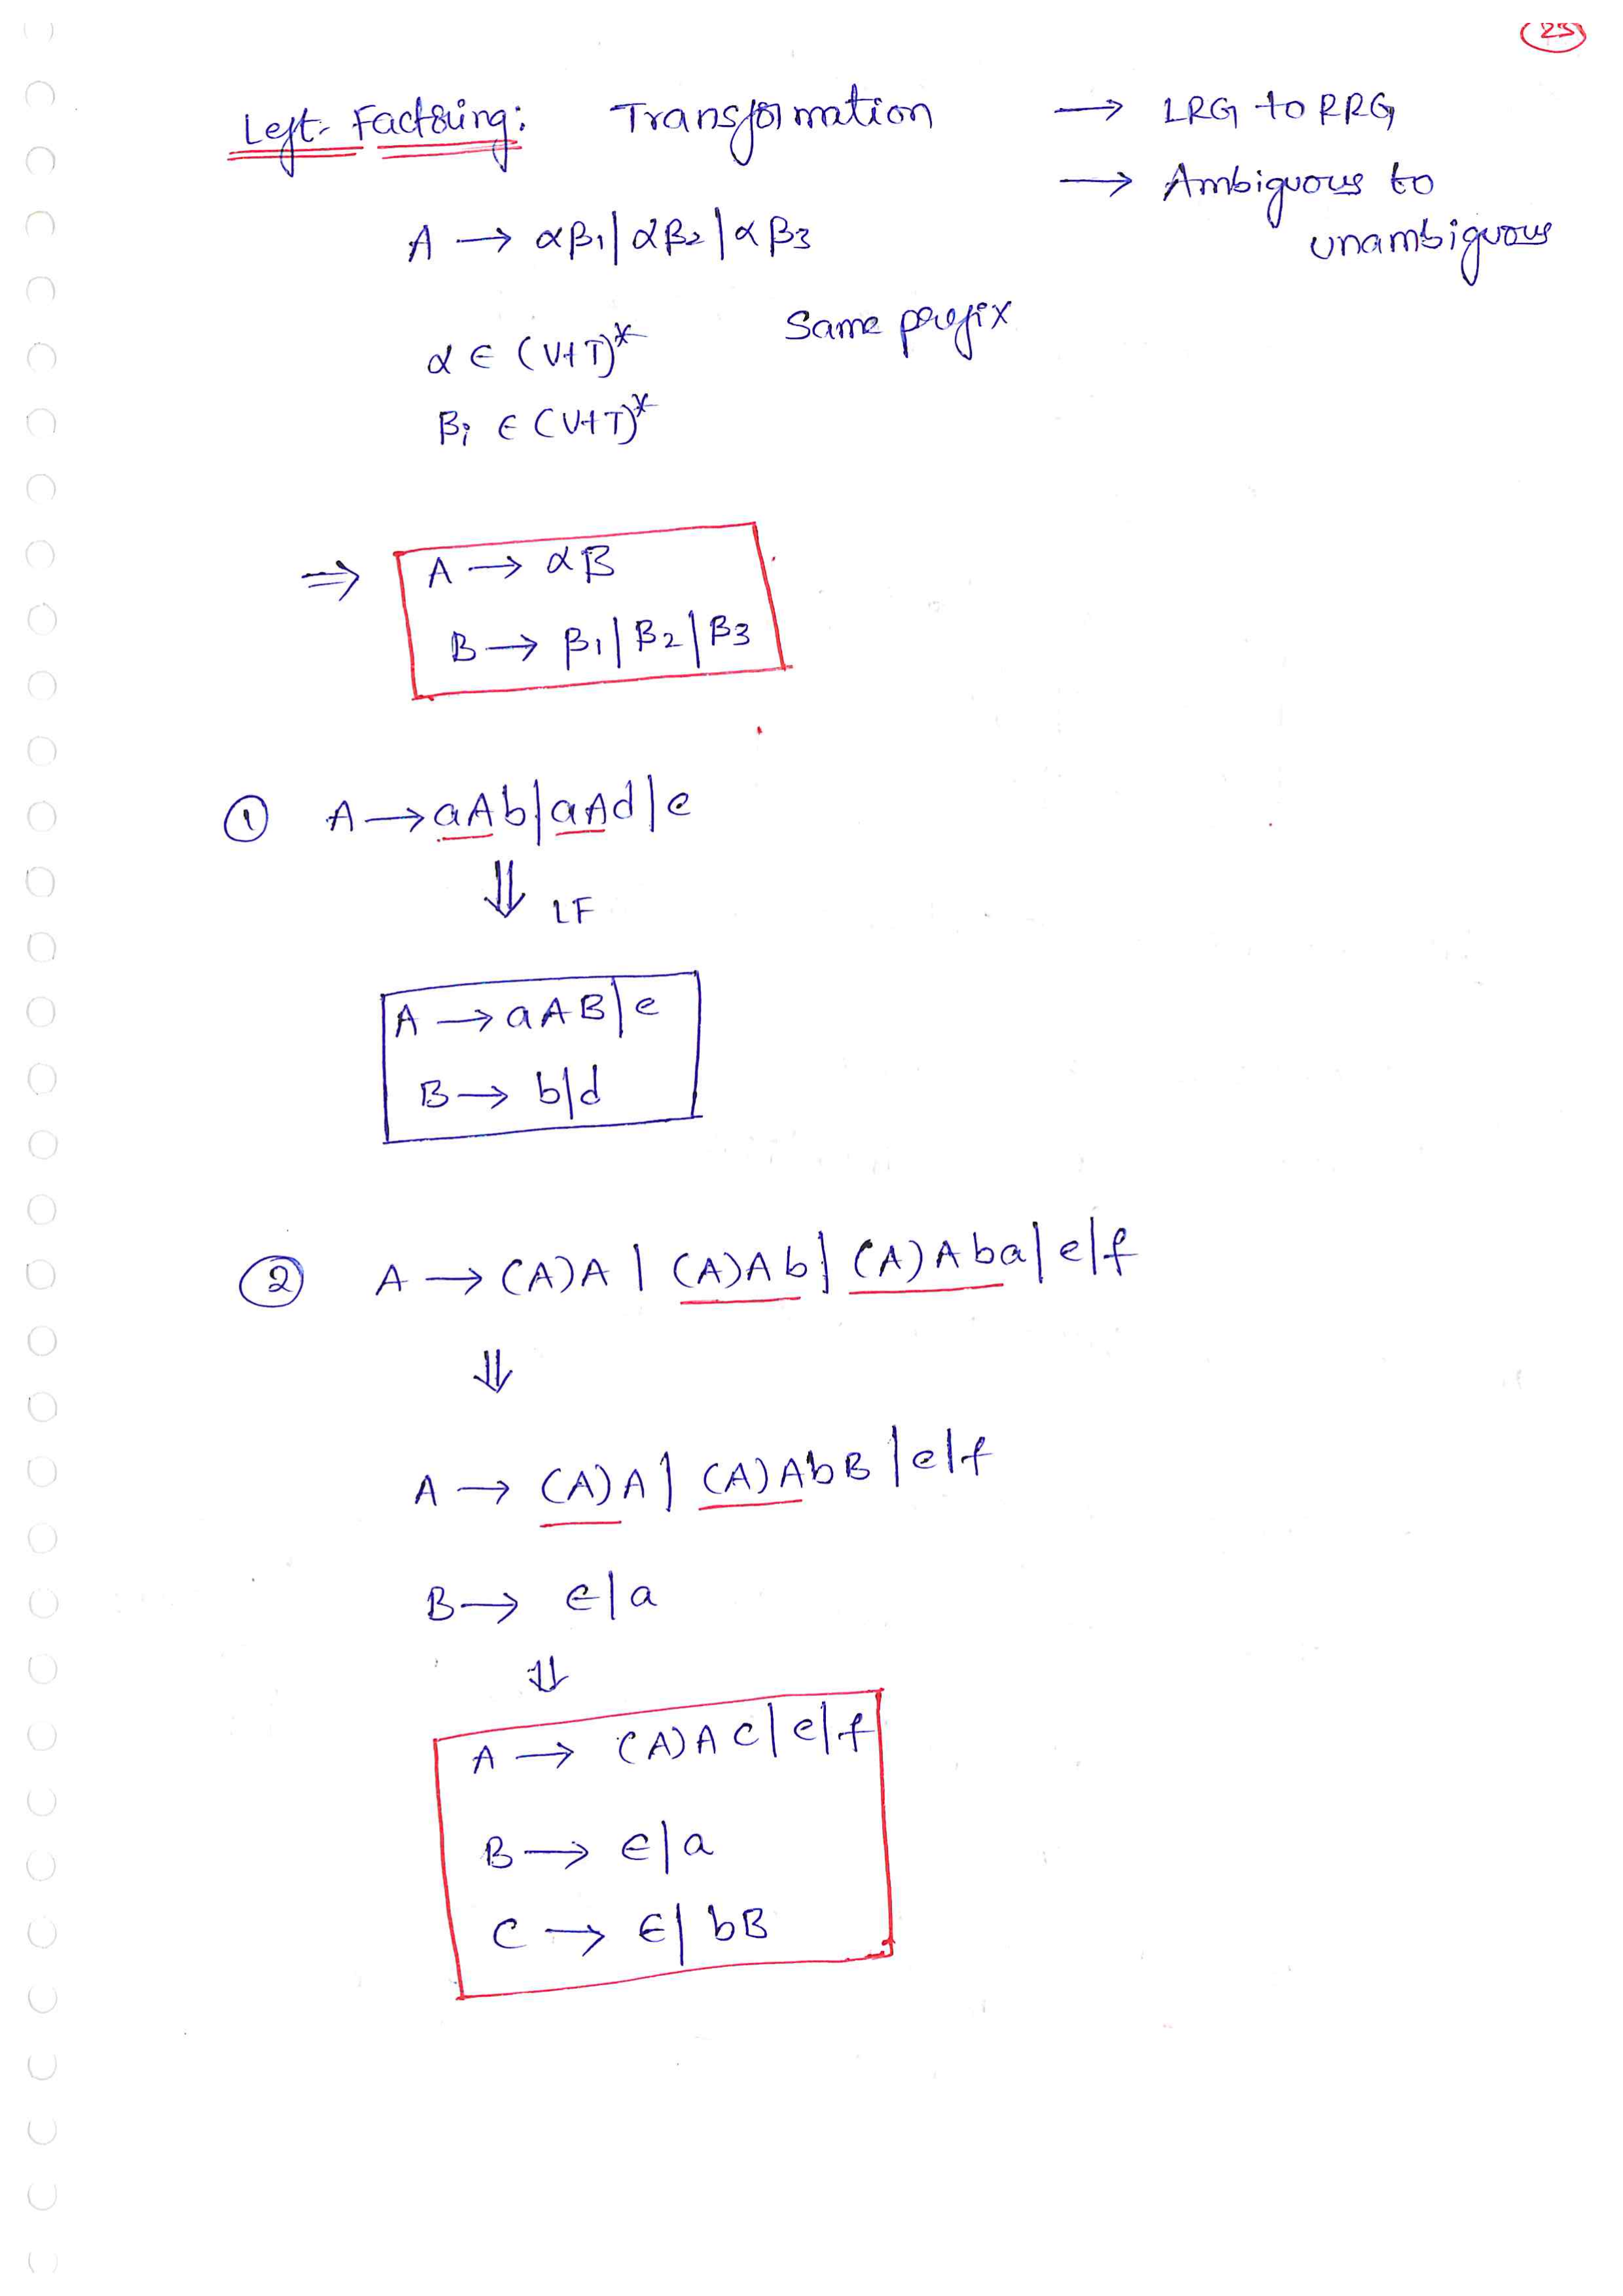 25
Left-Factoring: Transformation → LRG to RRG
→ Ambiguous to
unambiguous
A → αβ1|αβ2|αβ3
α ∈ (V+T)* Same prefix
βi ∈ (V+T)*
⇒ A → αB
B → β1|β2|β3
① A → aAb|aAd|e
⇓ LF
A → aAB|e
B → b|d
② A → (A)A | (A)Ab | (A)Aba|e|f
⇓
A → (A)A | (A)AbB |e|f
B → ∈|a
⇓
A → (A)AC|e|f
B → ∈|a
C → ∈|bB